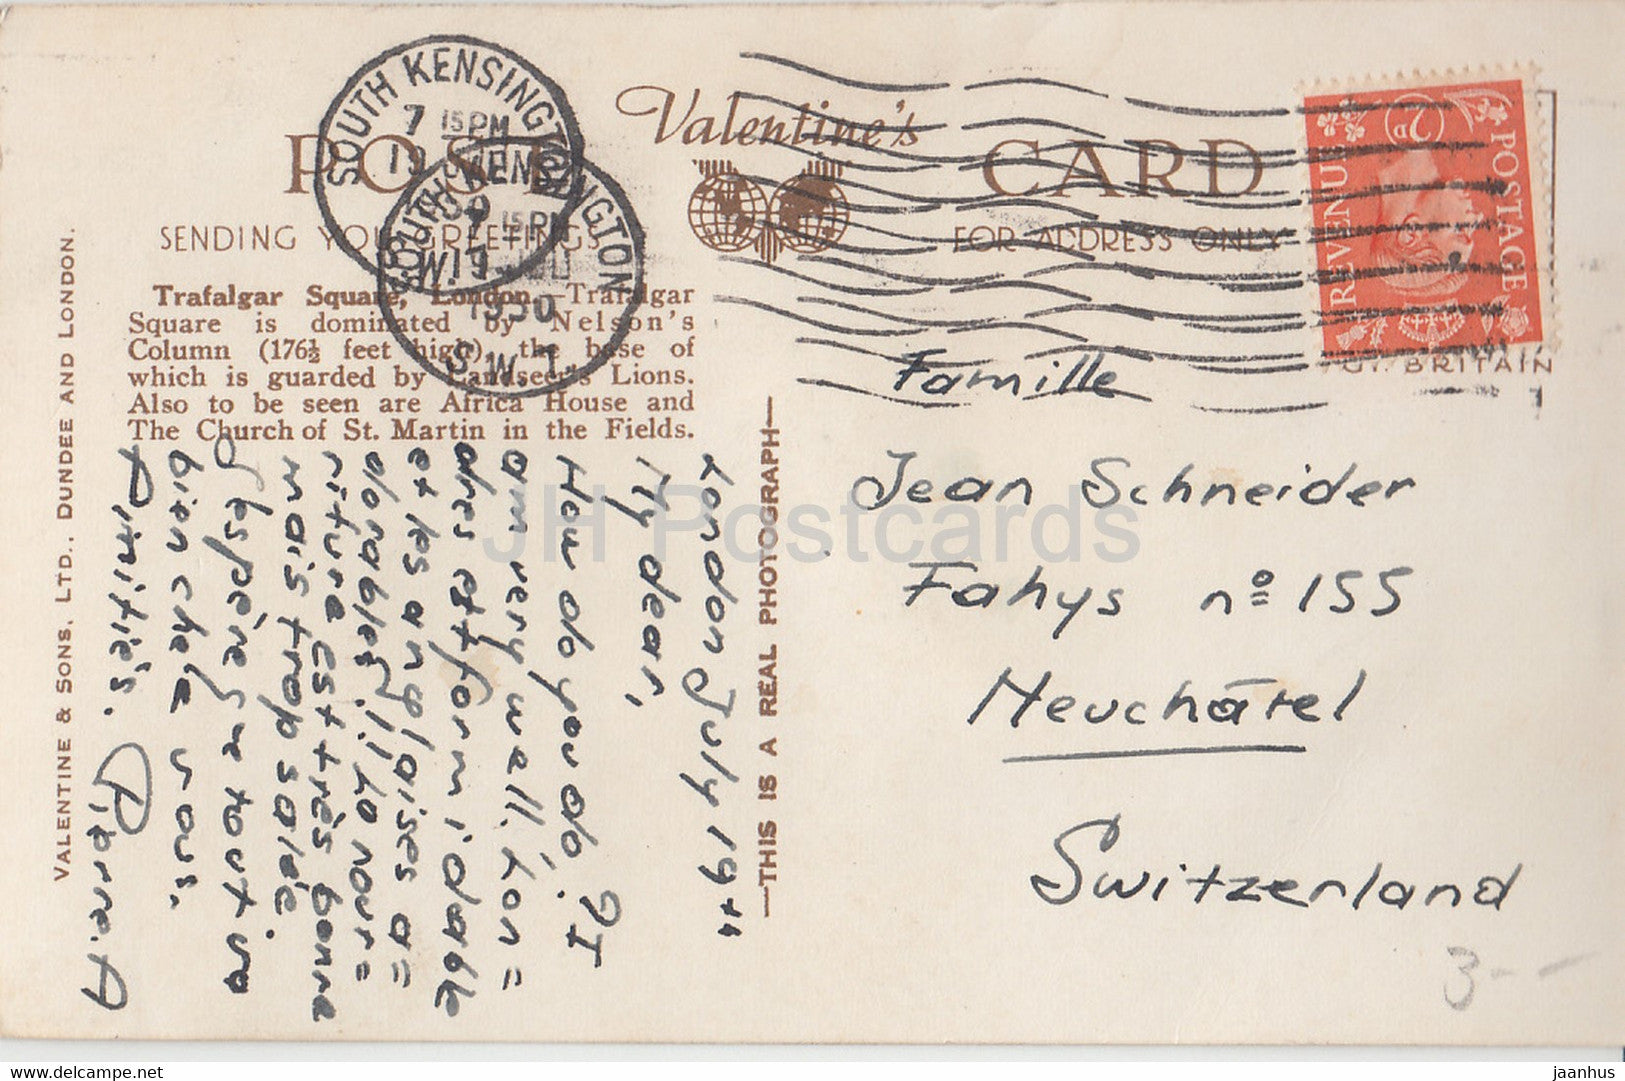 POST
Valentine's
CARD
SENDING YOU GREETINGS
FOR ADDRESS ONLY
Trafalgar Square, London.—Trafalgar
Square is dominated by Nelson's
Column (176½ feet high), the base of
which is guarded by Landseer's Lions.
Also to be seen are Africa House and
The Church of St. Martin in the Fields.
VALENTINE & SONS, LTD., DUNDEE AND LONDON.
—THIS IS A REAL PHOTOGRAPH—
SOUTH KENSINGTON
7 15 PM
19
S.W.
SOUTH KENSINGTON
7 15 PM
19
1950
S.W.7.
REVENUE
2D
POSTAGE
GT. BRITAIN
London July 19th
My dear,
How do you do? I
am very well. Lon=
dres est formidable
et les anglaises a=
dorables!!! La nour=
riture est très bonne
mais trop salée.
J'espère que tout va
bien chez vous.
Amitiés. Pierre. A
Famille
Jean Schneider
Fahys nº 155
Neuchâtel
Switzerland
3--
JH Postcards
www.delcampe.net
jaanhus